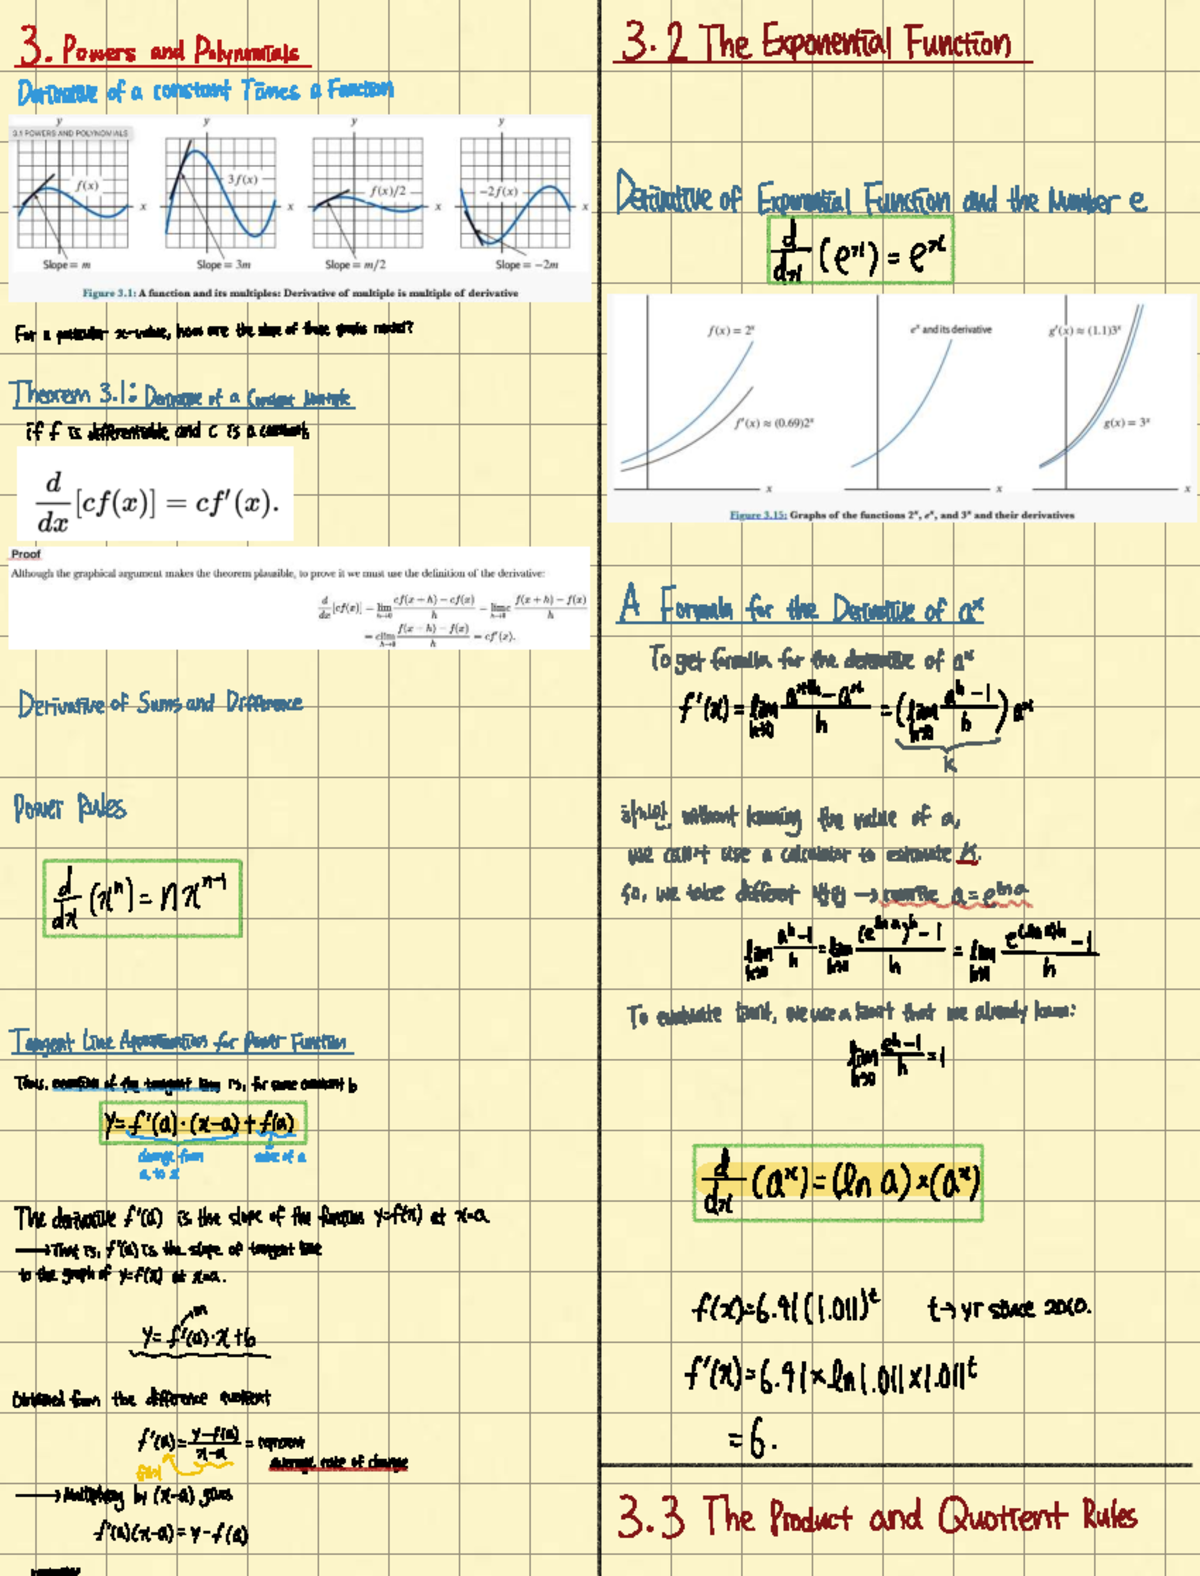 3. Powers and Polynomials
Derivative of a constant Times a Function
3.1 POWERS AND POLYNOMIALS
y
f(x)
x
Slope = m
y
3f(x)
x
Slope = 3m
y
f(x)/2
x
Slope = m/2
y
−2f(x)
x
Slope = −2m
Figure 3.1: A function and its multiples: Derivative of multiple is multiple of derivative
For a particular x-value, how are the slope of these graphs related?
Theorem 3.1: Derivative of a Constant Multiple
if f is differentiable and c is a constant,
d/dx [cf(x)] = cf′(x).
Proof
Although the graphical argument makes the theorem plausible, to prove it we must use the definition of the derivative:
Derivative of Sums and Difference
Power Rules
d/dx (xⁿ) = nxⁿ⁻¹
Tangent Line Approximation for Power Function
Thus, equation of the tangent line is, for some constant b
y=f'(a)·(x-a)+f(a)
change from
a, to x
value of a
The derivative f'(a) is the slope of the function y=f(x) at x=a
→ That is, f'(a) is the slope of tangent line
to the graph of y=f(x) at x=a.
m
y= f'(a)·x+b
Obtained from the difference quotient
f'(a)= y-f(a)/x-a = represent
average rate of change
→ Multiplying by (x-a) gives
f'(a)(x-a)=y-f(a)
3.2 The Exponential Function
Derivative of Exponential Function and the Number e
d/dx (eˣ) = eˣ
f(x) = 2ˣ
f′(x) ≈ (0.69)2ˣ
x
eˣ and its derivative
x
g′(x) ≈ (1.1)3ˣ
g(x) = 3ˣ
x
Figure 3.15: Graphs of the functions 2ˣ, eˣ, and 3ˣ and their derivatives
A Formula for the Derivative of aˣ
To get formula for the derivative of aˣ
f'(x) = lim h→0 aˣ⁺ʰ-aˣ/h = (lim h→0 aʰ-1/h) aˣ
k
without knowing the value of a,
we can't use a calculator to estimate k.
So, we take different → rewrite a=e^ln a
lim h→0 aʰ-1/h = lim h→0 (e^ln a)ʰ-1/h = lim h→0 e^(ln a)h -1/h
To evaluate limit, we use a limit that we already know:
lim h→0 eʰ-1/h =1
d/dx (aˣ) = (ln a)×(aˣ)
f(x)=6.91(1.011)ᵗ t→yr since 2010.
f'(x)=6.91×ln1.011×1.011ᵗ
=6.
3.3 The Product and Quotient Rules